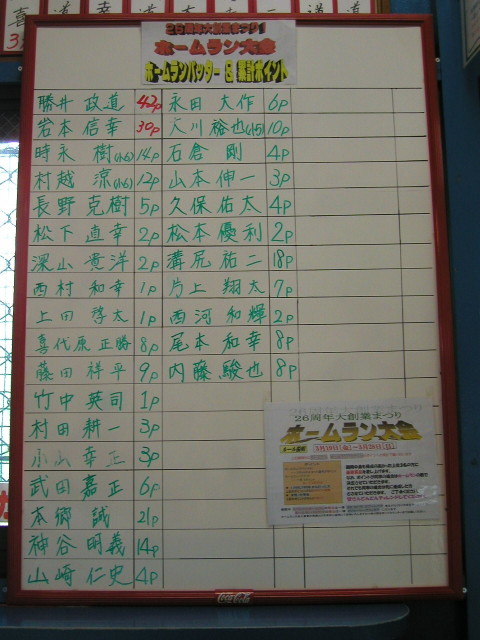 26周年大創業まつり!
ホームラン大会
ホームランバッター & 累計ポイント
勝井 政道 42P
岩本 信幸 30P
時永 樹(小6) 14P
村越 涼(小6) 12P
長野 克樹 5P
松下 直幸 2P
深山 貴洋 2P
西村 和幸 1P
上田 啓太 1P
喜代原 正勝 8P
藤田 祥平 9P
竹中 英司 1P
村田 耕一 3P
小山 幸正 3P
武田 嘉正 6P
本郷 誠 21P
神谷 明義 14P
山崎 仁史 4P
永田 大作 6P
大川 裕也(小5) 10P
石倉 剛 4P
山本 伸一 3P
久保 佑太 4P
松本 優利 2P
溝尻 祐二 18P
片上 翔太 7P
西河 和輝 2P
尾本 和幸 8P
内藤 駿也 8P
26周年大創業まつり
ホームラン大会
Coca-Cola